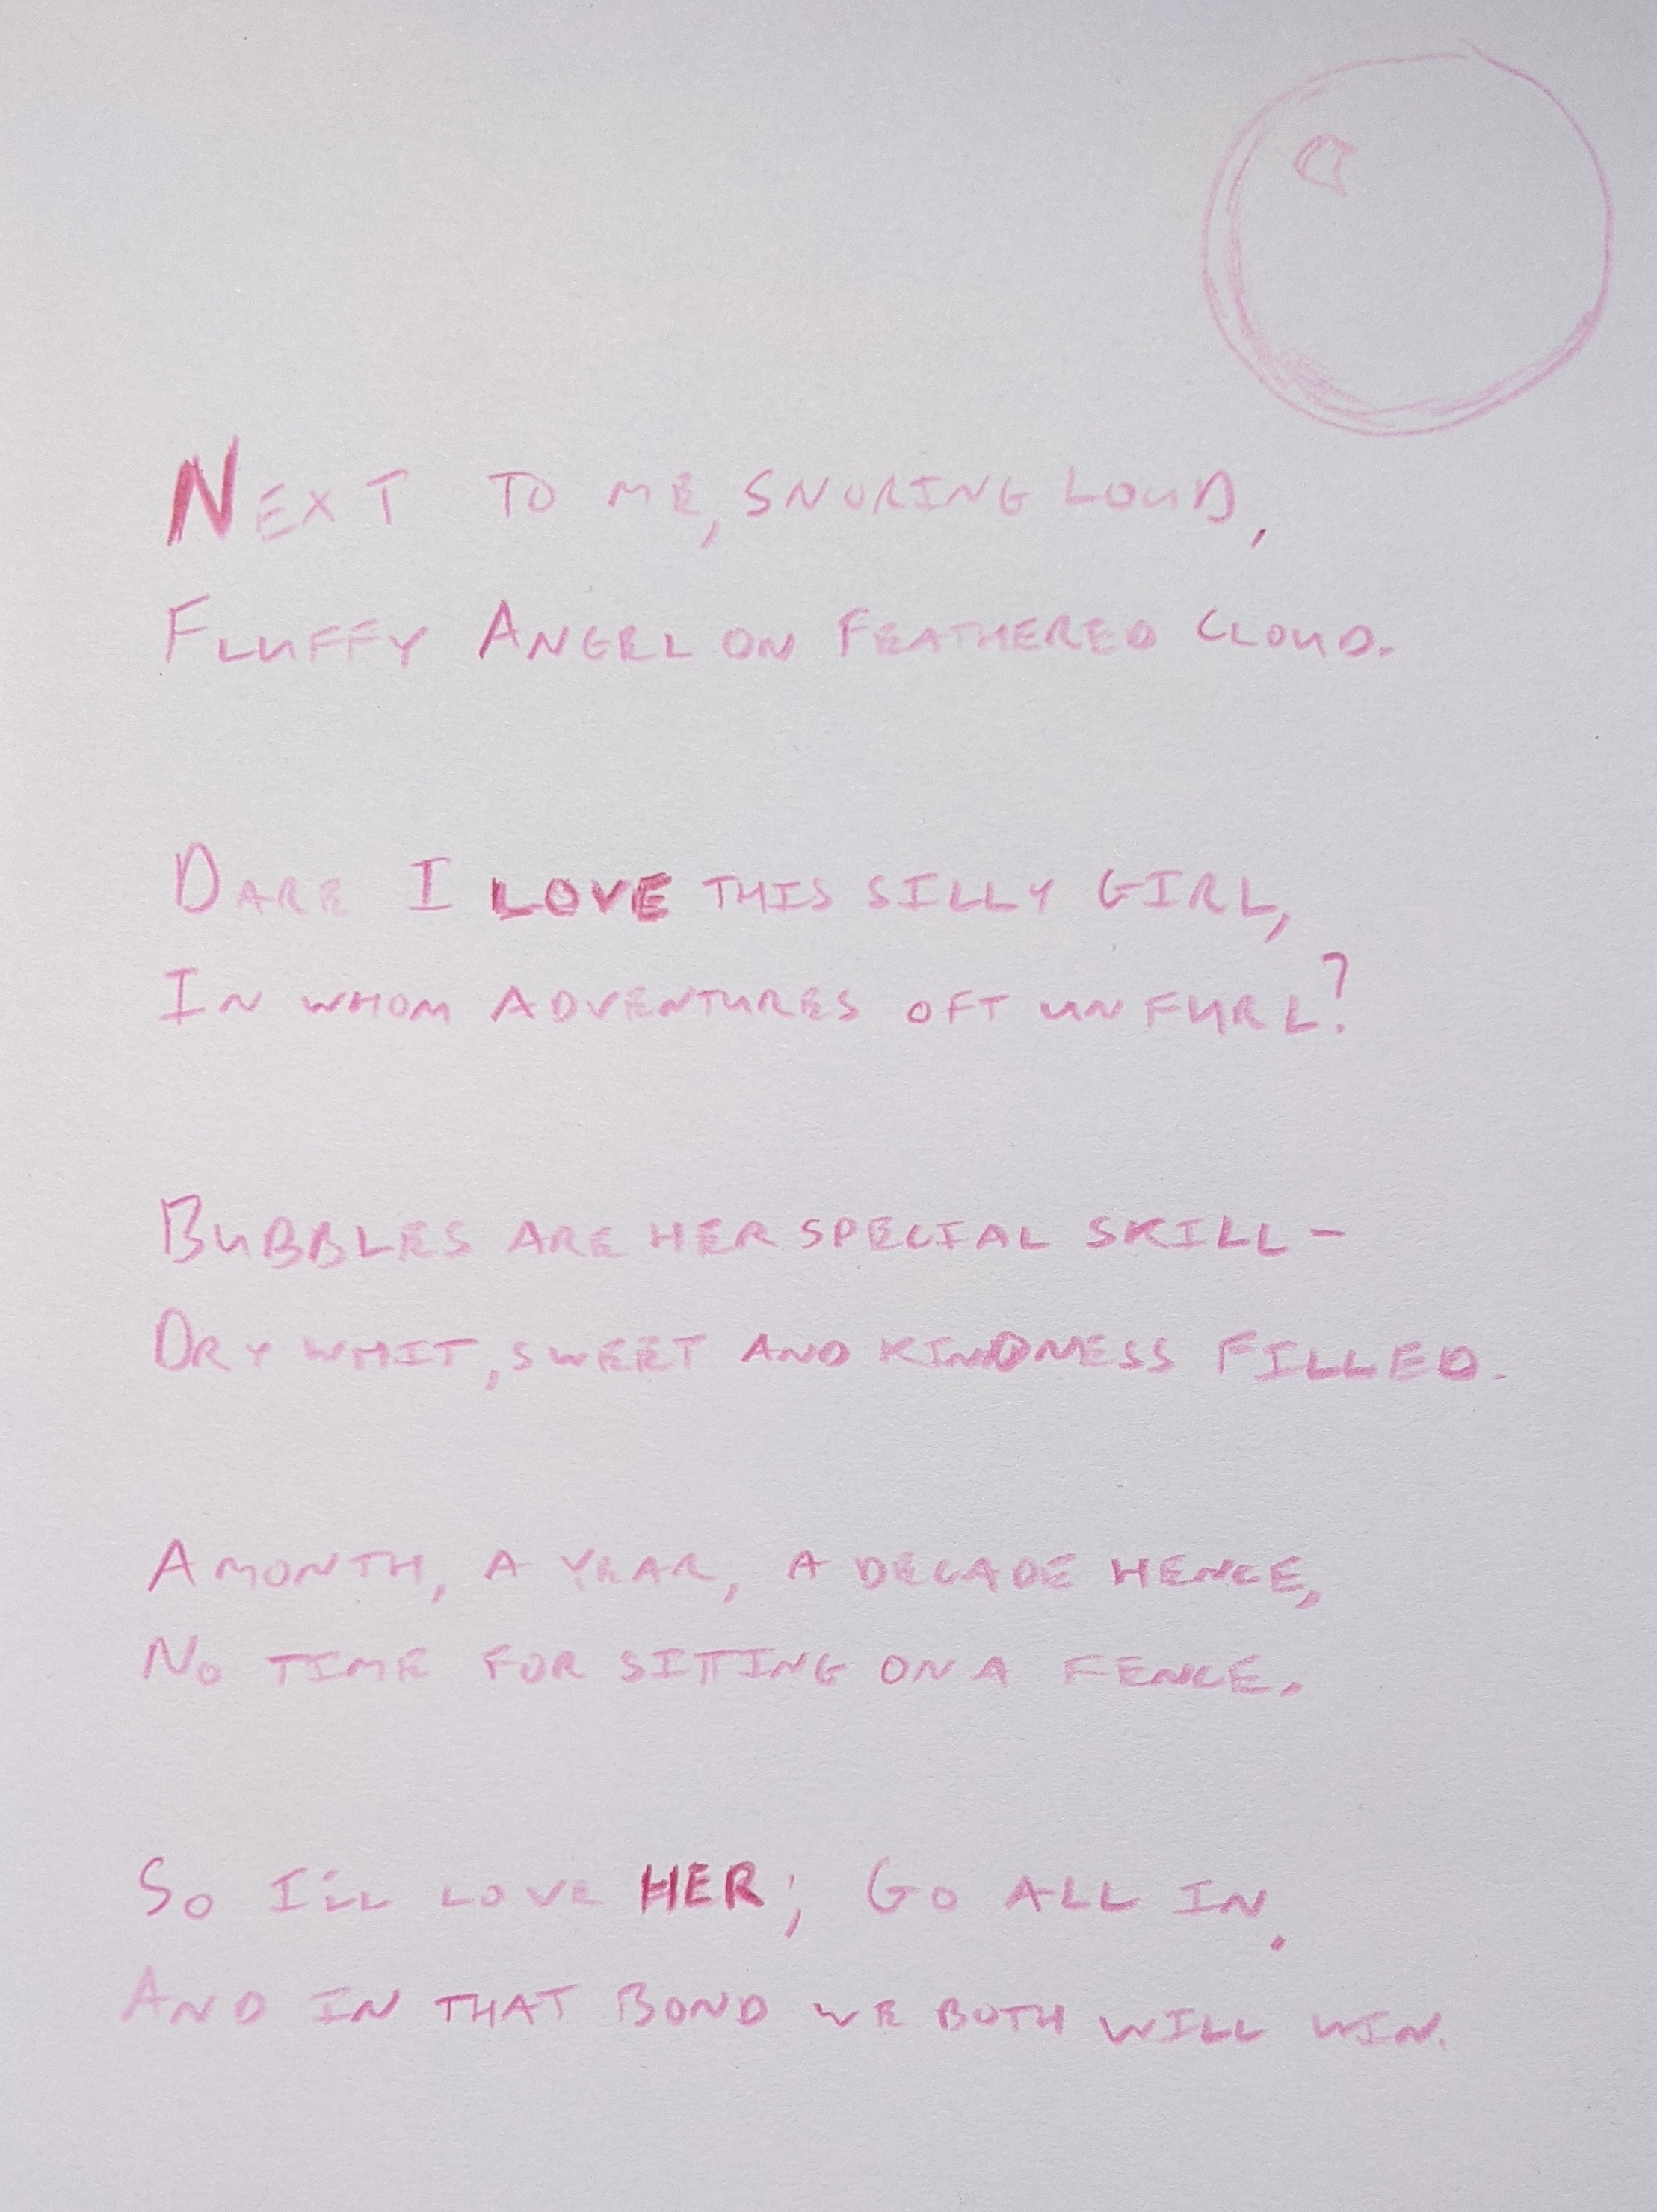 NEXT TO ME, SNORING LOUD,
FLUFFY ANGEL ON FEATHERED CLOUD.
DARE I LOVE THIS SILLY GIRL,
IN WHOM ADVENTURES OFT UNFURL?
BUBBLES ARE HER SPECIAL SKILL -
DRY WHIT, SWEET AND KINDNESS FILLED.
A MONTH, A YEAR, A DECADE HENCE,
NO TIME FOR SITTING ON A FENCE.
SO I'LL LOVE HER; GO ALL IN.
AND IN THAT BOND WE BOTH WILL WIN.